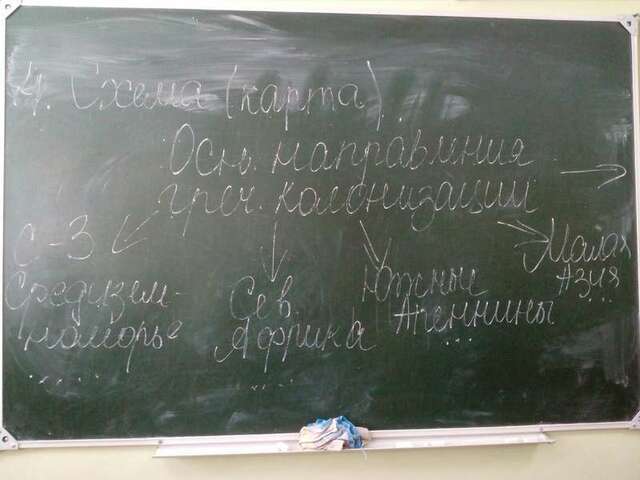 К/. Схема (карта)
Осн. направления
греч. колонизации
С-З
Средизем-
номорье
.....
Сев.
Африка
....
Южные
Апеннины
...
Малая
Азия
...